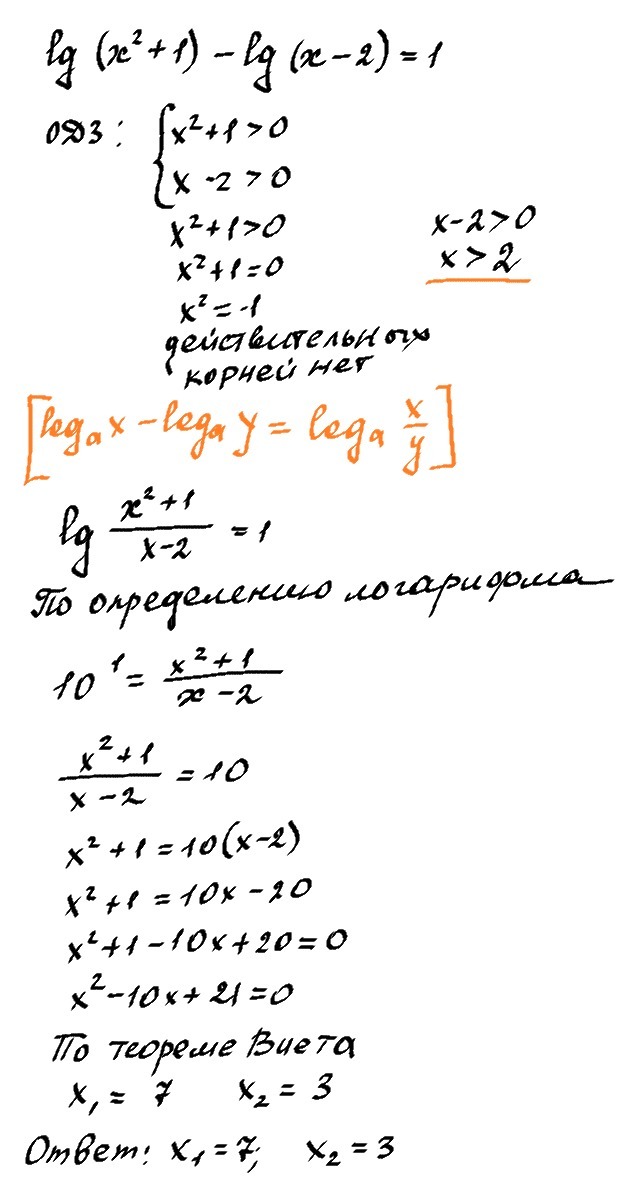 lg (x² + 1) - lg (x - 2) = 1
ОДЗ: { x² + 1 > 0
x - 2 > 0
x² + 1 > 0 x - 2 > 0
x² + 1 = 0 x > 2
x² = -1
действительных
корней нет
[logₐ x - logₐ y = logₐ x/y]
lg (x² + 1)/(x - 2) = 1
По определению логарифма
10¹ = (x² + 1)/(x - 2)
(x² + 1)/(x - 2) = 10
x² + 1 = 10(x - 2)
x² + 1 = 10x - 20
x² + 1 - 10x + 20 = 0
x² - 10x + 21 = 0
По теореме Виета
x₁ = 7 x₂ = 3
Ответ: x₁ = 7; x₂ = 3